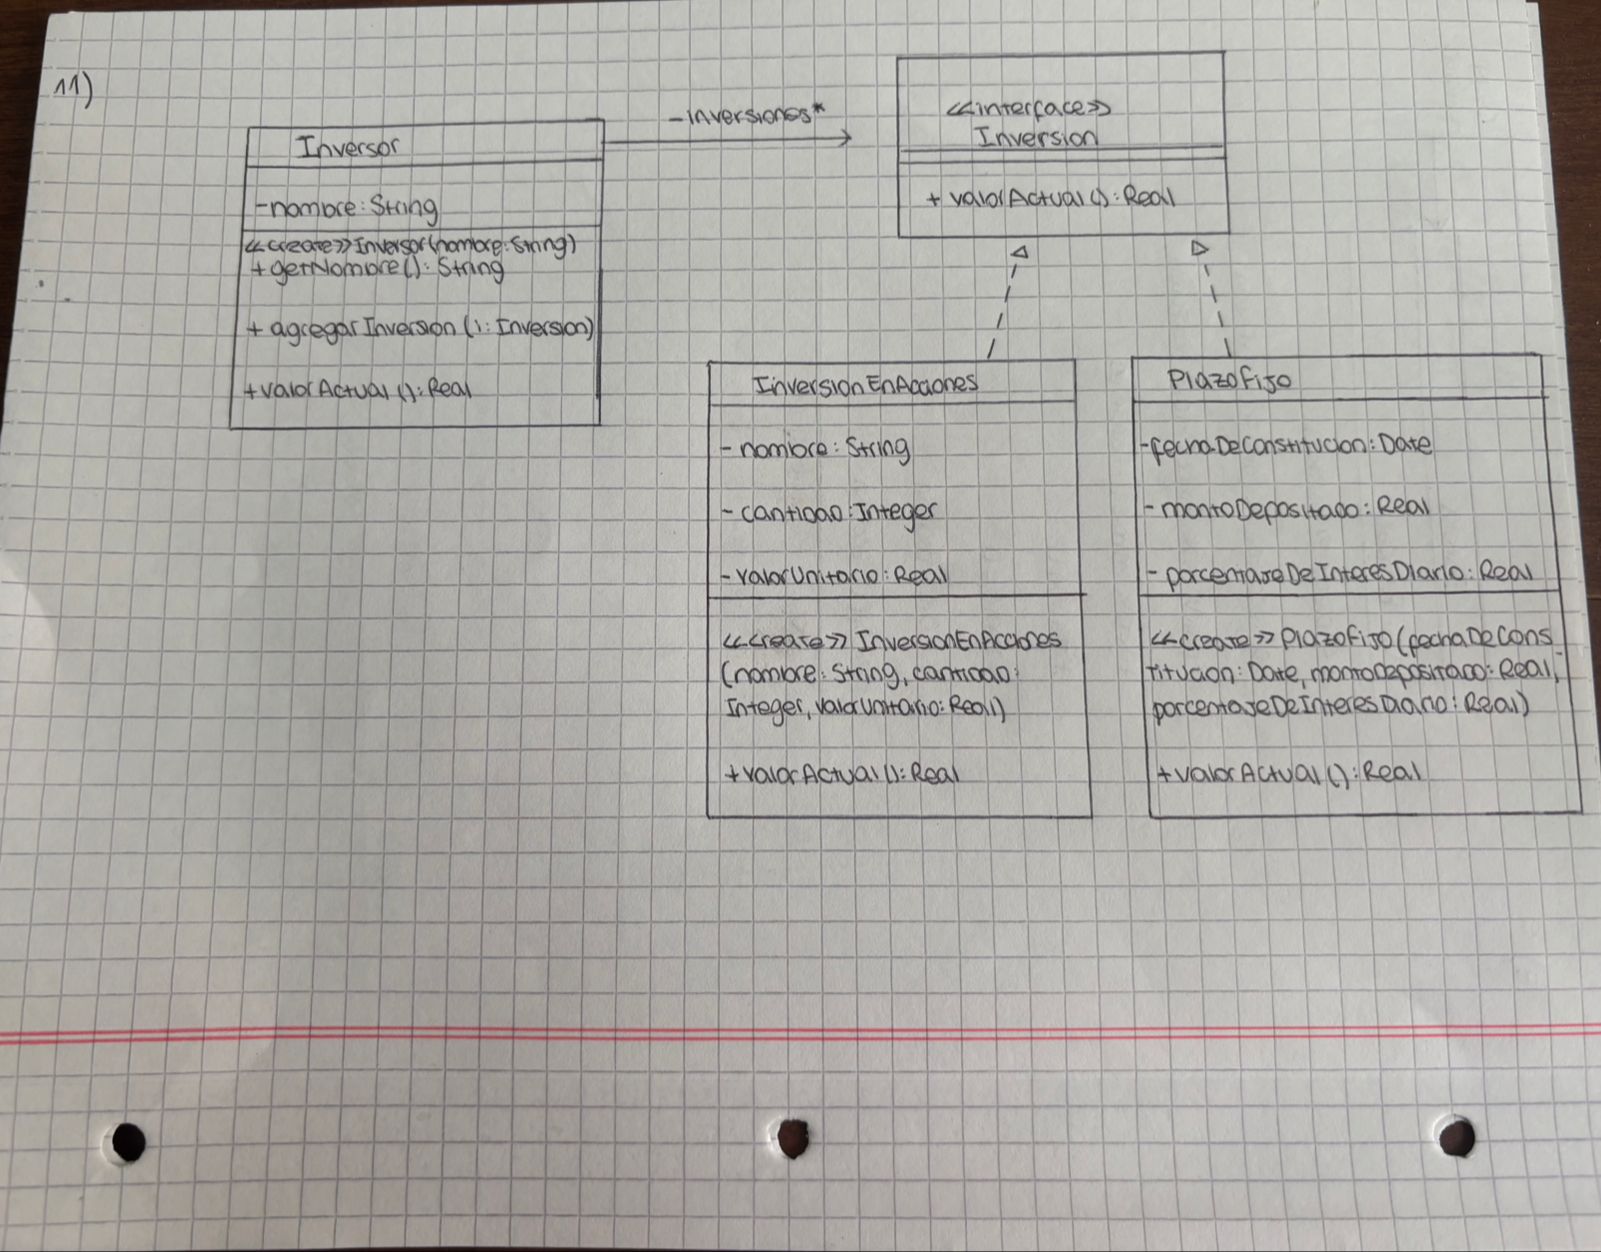 11)
Inversor
-nombre: String
<<create>> Inversor(nombre: String)
+ getNombre(): String
+ agregarInversion (i: Inversion)
+valorActual(): Real
-inversiones*
<<interface>>
Inversion
+ valorActual(): Real
InversionEnAcciones
- nombre: String
- cantidad: Integer
- valorUnitario: Real
<<create>> InversionEnAcciones
(nombre: String, cantidad:
Integer, valorUnitario: Real)
+valorActual(): Real
PlazoFijo
-fechaDeConstitucion: Date
- montoDepositado: Real
- porcentajeDeInteresDiario: Real
<<create>> PlazoFijo(fechaDeCons
titucion: Date, montoDepositado: Real,
porcentajeDeInteresDiario: Real)
+valorActual(): Real